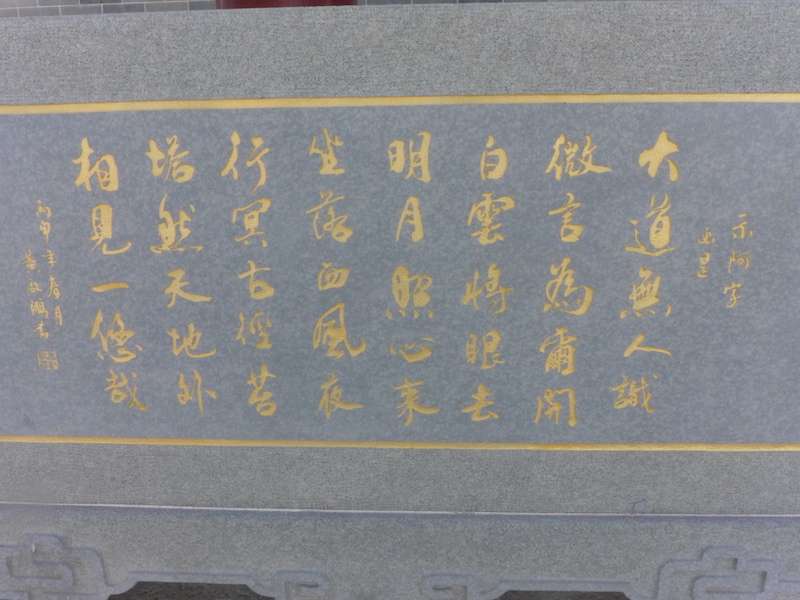 示阿字
函昰
大道無人識
微言為爾開
白雲將眼去
明月照心來
坐落西風夜
行冥古徑苔
塔然天地外
相見一悠哉
丙申年春月
書